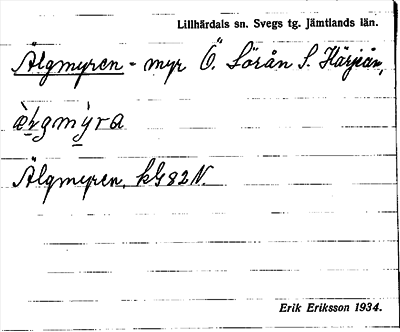 Lillhärdals sn. Svegs tg. Jämtlands län.
Älgmyren - myr Ö. Lörån S. Härjeån,
Älgmyren. kG82N.
Erik Eriksson 1934.